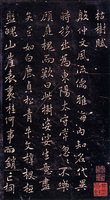 枯樹賦
殷仲文風流儒雅海內知名代異
時移出為東陽太守常忽忽不樂
顧庭槐而歎曰此樹婆娑生意盡
矣至如白鹿貞松青牛文梓根柢
盤魄山崖表裏桂何事而銷亡桐